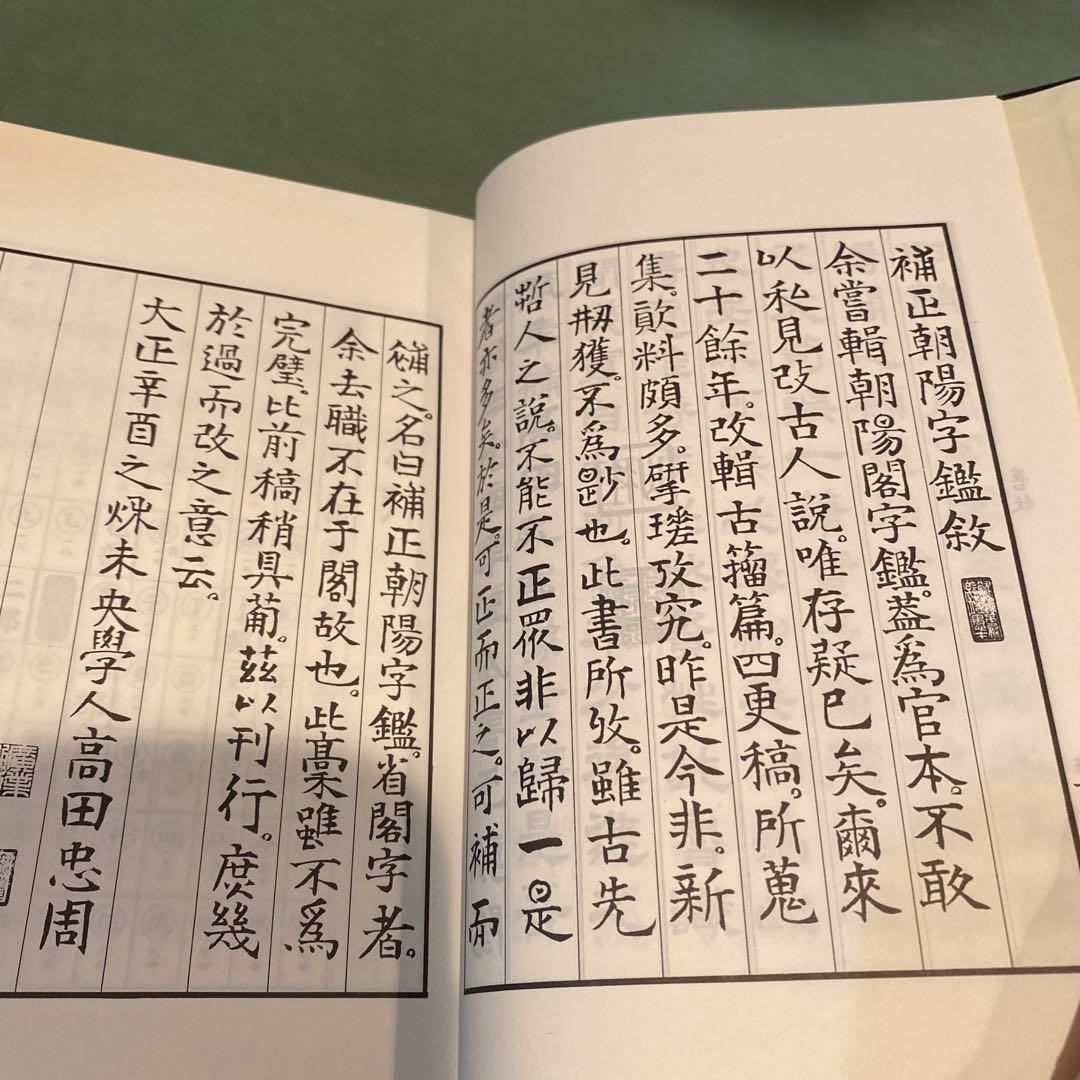 補正朝陽字鑑敘
余嘗輯朝陽閣字鑑。葢爲官本。不敢
以私見改古人說。唯存疑已矣。爾來
二十餘年。改輯古籀篇。四更稿。所蒐
集。款料頗多。揅璡攷究。昨是今非。新
見剏獲。不爲尟也。此書所攷。雖古先
悊人之說。不能不正眾非以歸一是
者亦多矣。於是可正而正之。可補而
補之。名曰補正朝陽字鑑。省閣字者。
余去職不在于閣故也。此稾雖不爲
完璧。比前稿稍具葡。茲以刊行。庶幾
於過而改之意云。
大正辛酉之烁未央學人高田忠周